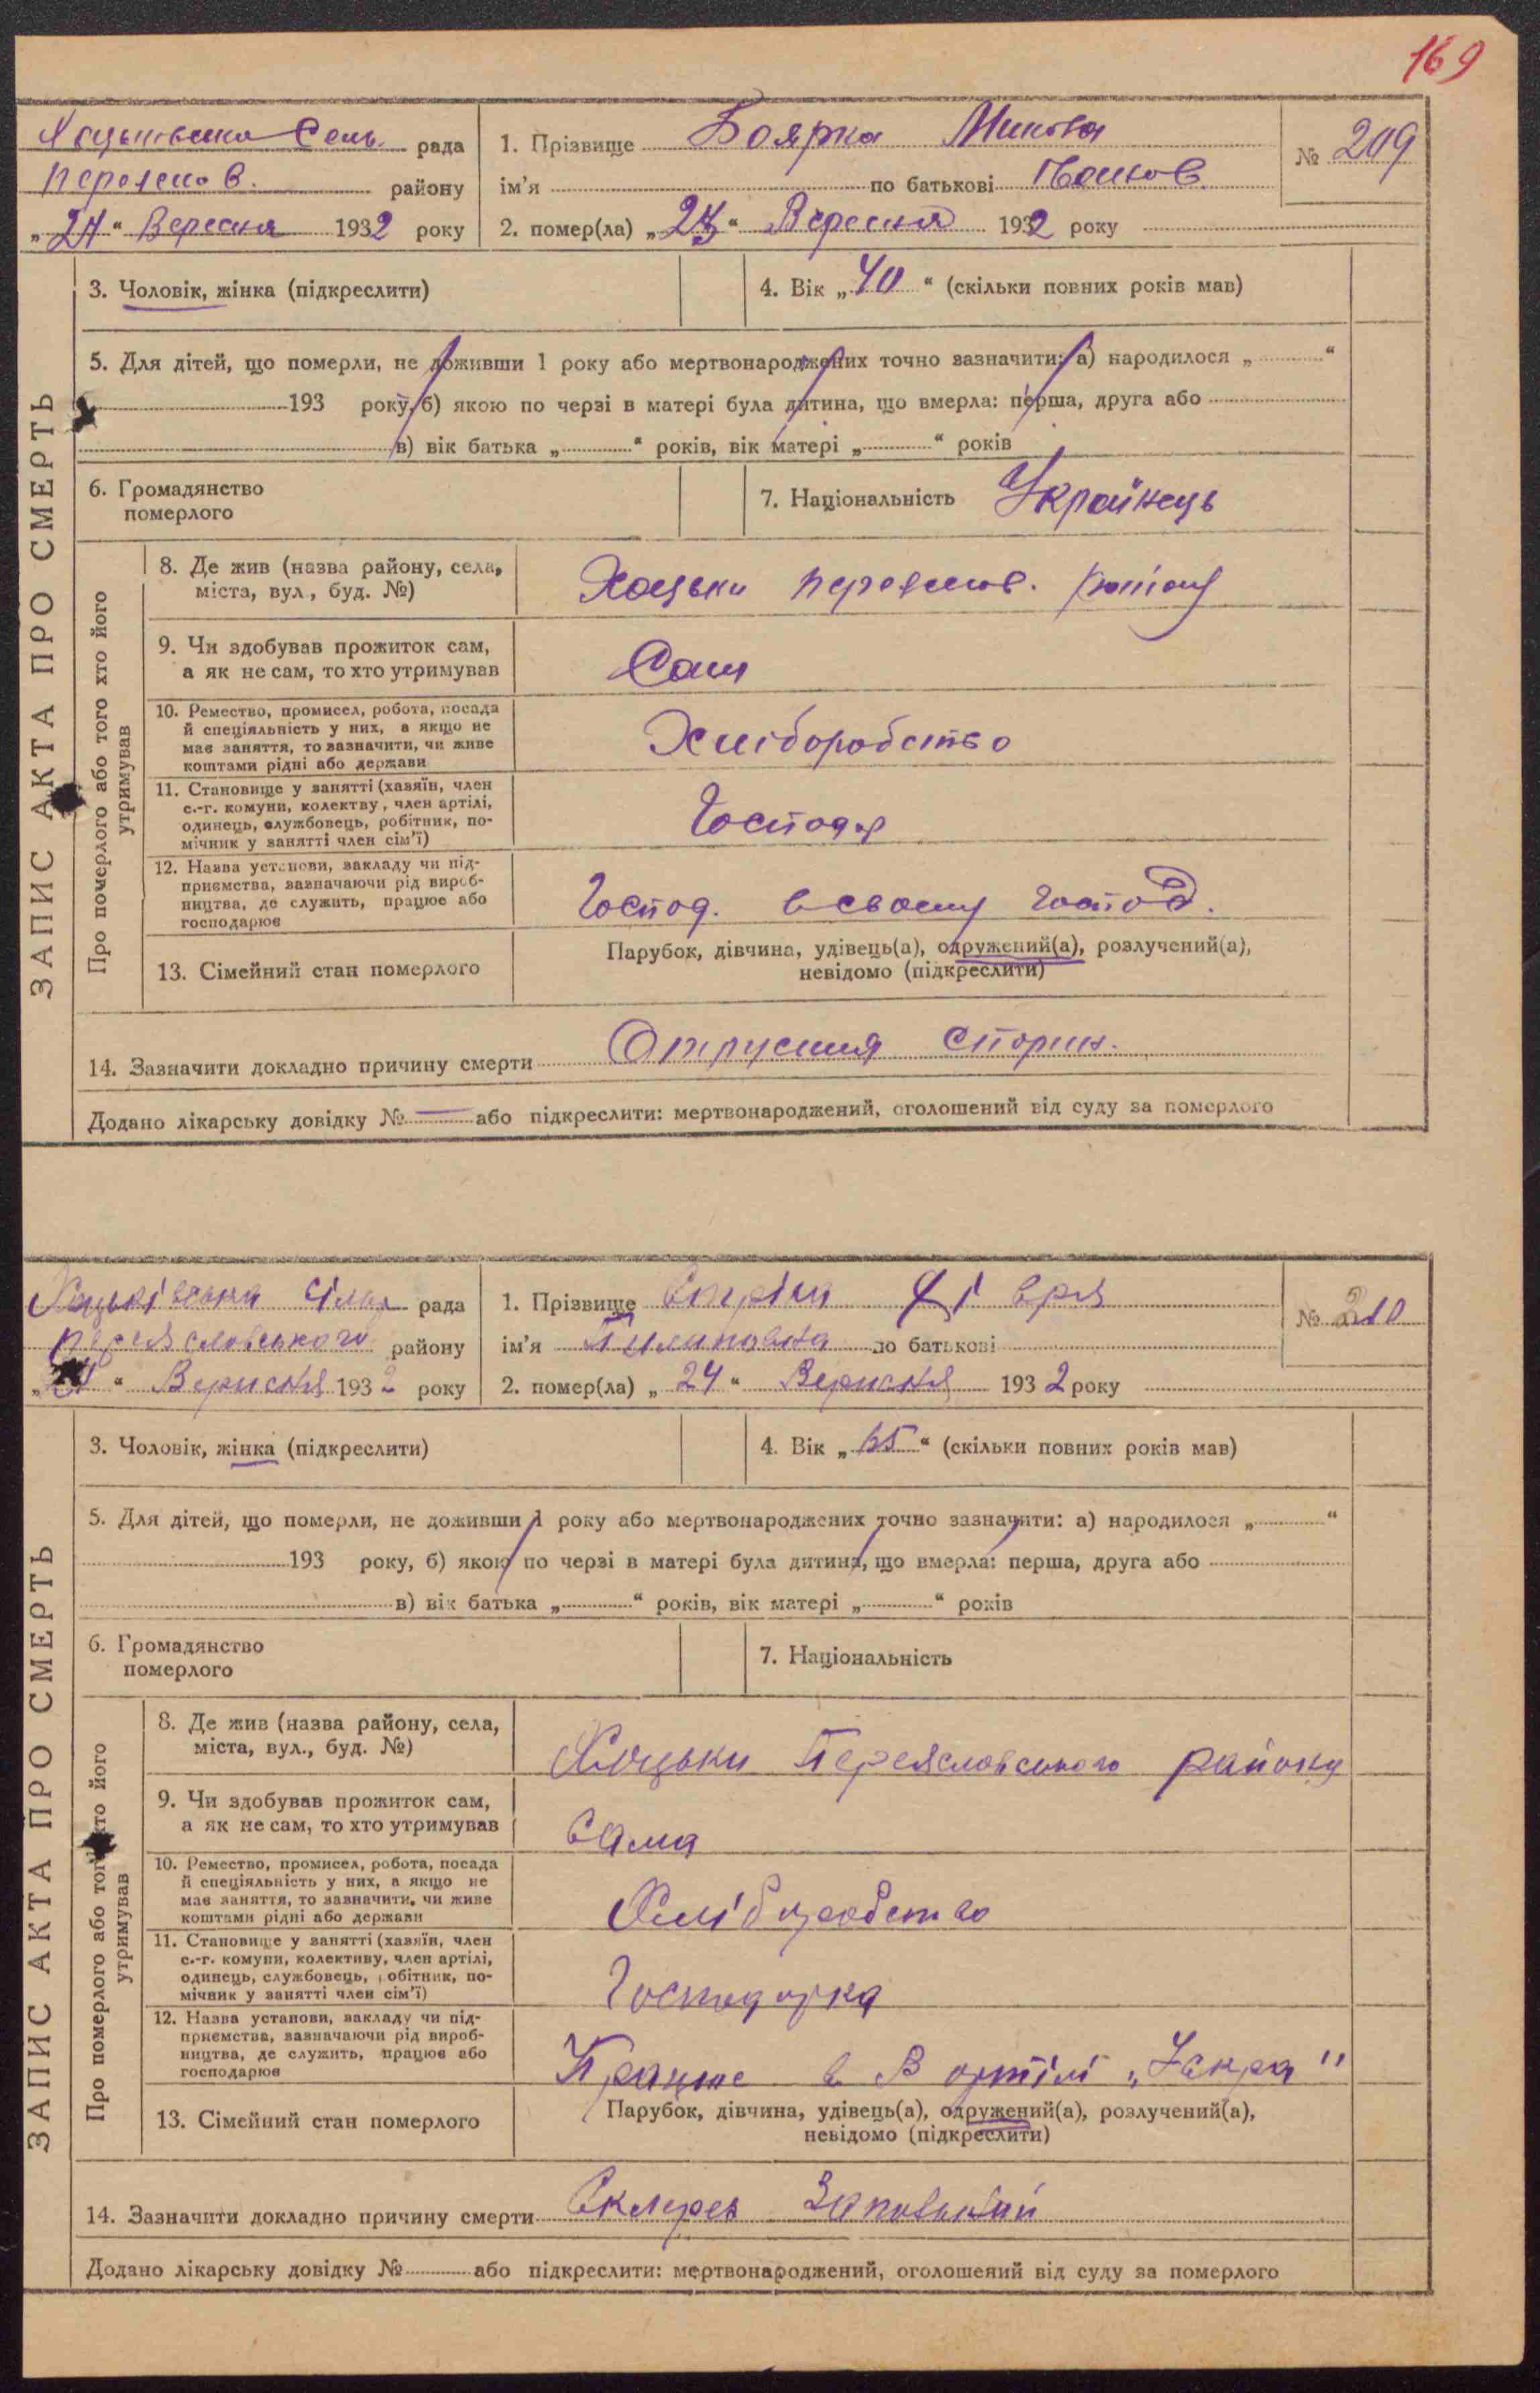 169
Хоцьківська Сель. рада
Переяслов. району
„24“ Вересня 1932 року
1. Прізвище Боярка Микола
ім'я по батькові
2. помер(ла) „ “ Вересня 1932 року
№ 209
ЗАПИС АКТА ПРО СМЕРТЬ
3. Чоловік, жінка (підкреслити)
4. Вік „40“ (скільки повних років мав)
5. Для дітей, що померли, не доживши 1 року або мертвонароджених точно зазначити: а) народилося „ “
193 року, б) якою по черзі в матері була дитина, що вмерла: перша, друга або
в) вік батька „ “ років, вік матері „ “ років
6. Громадянство
померлого
7. Національність Українець
Про померлого або того хто його
утримував
8. Де жив (назва району, села,
міста, вул., буд. №)
Хоцьки Переяслов. району
9. Чи здобував прожиток сам,
а як не сам, то хто утримував
Сам
10. Ремество, промисел, робота, посада
й спеціяльність у них, а якщо не
має заняття, то зазначити, чи живе
коштами рідні або держави
Хліборобство
11. Становище у занятті (хазяїн, член
с.-г. комуни, колектву, член артілі,
одинець, службовець, робітник, по-
мічник у занятті член сім'ї)
Господар
12. Назва установи, закладу чи під-
приємства, зазначаючи рід вироб-
ництва, де служить, працює або
господарює
Господ. в своєму господ.
13. Сімейний стан померлого
Парубок, дівчина, удівець(а), одружений(а), розлучений(а),
невідомо (підкреслити)
14. Зазначити докладно причину смерти Отруєння
Додано лікарську довідку № — або підкреслити: мертвонароджений, оголошений від суду за померлого
Хоцьківська Сільська рада
Переясловського району
„24“ Вересня 1932 року
1. Прізвище
ім'я Пилиповна по батькові
2. помер(ла) „24“ Вересня 1932 року
№ 210
ЗАПИС АКТА ПРО СМЕРТЬ
3. Чоловік, жінка (підкреслити)
4. Вік „65“ (скільки повних років мав)
5. Для дітей, що померли, не доживши 1 року або мертвонароджених точно зазначити: а) народилося „ “
193 року, б) якою по черзі в матері була дитина, що вмерла: перша, друга або
в) вік батька „ “ років, вік матері „ “ років
6. Громадянство
померлого
7. Національність
Про померлого або того хто його
утримував
8. Де жив (назва району, села,
міста, вул., буд. №)
Хоцьки Переясловського району
9. Чи здобував прожиток сам,
а як не сам, то хто утримував
Сама
10. Ремество, промисел, робота, посада
й спеціяльність у них, а якщо не
має заняття, то зазначити, чи живе
коштами рідні або держави
Хліборобство
11. Становище у занятті (хазяїн, член
с.-г. комуни, колективу, член артілі,
одинець, службовець, робітник, по-
мічник у занятті член сім'ї)
Господарка
12. Назва установи, закладу чи під-
приємства, зазначаючи рід вироб-
ництва, де служить, працює або
господарює
Працює в В артілі „Іскра"
13. Сімейний стан померлого
Парубок, дівчина, удівець(а), одружений(а), розлучений(а),
невідомо (підкреслити)
14. Зазначити докладно причину смерти
Додано лікарську довідку № або підкреслити: мертвонароджений, оголошений від суду за померлого